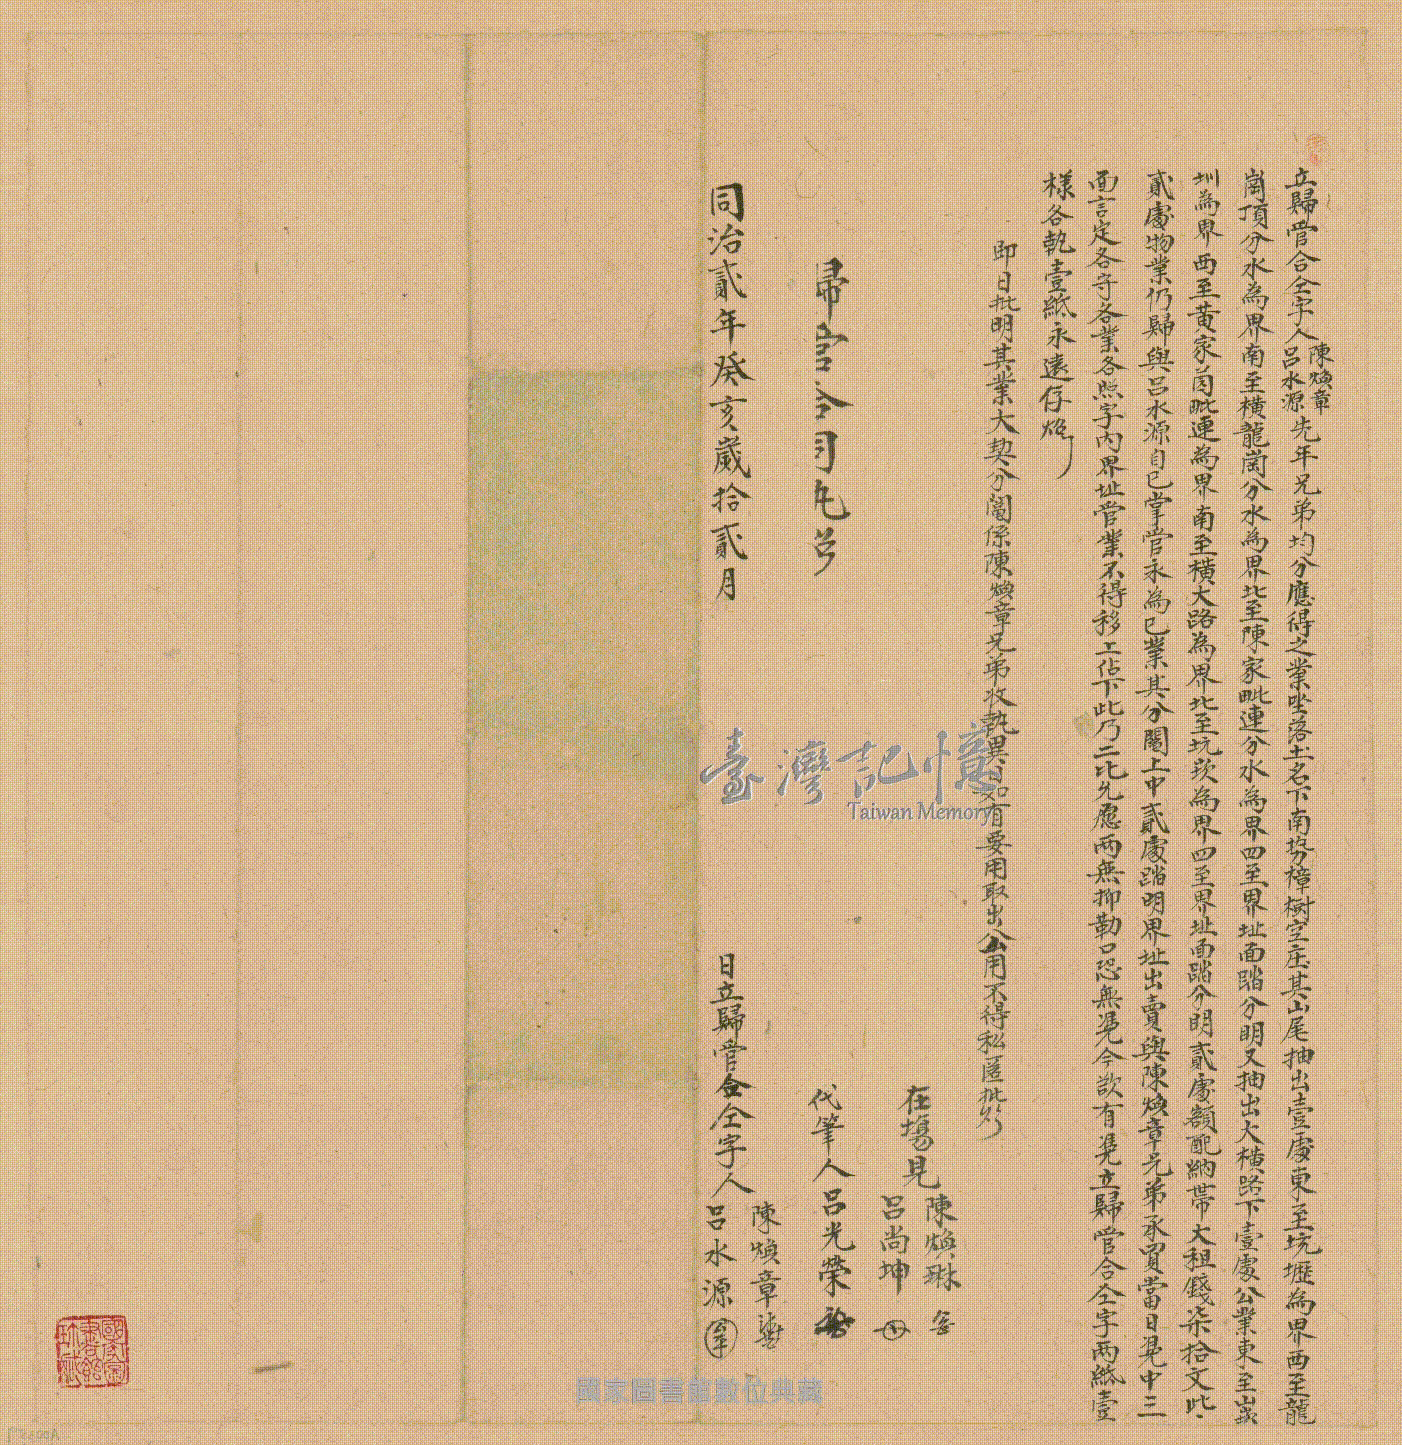 立歸管合仝字人陳煥章呂水源先年兄弟均分應得之業坐落土名下南勢樟樹空庄其山尾抽出壹處東至坑壢為界西至龍
崗頂分水為界南至橫龍崗分水為界北至陳家毗連分水為界四至界址面踏分明又抽出大橫路下壹處公業東至崁
圳為界西至黃家茵毗連為界南至橫大路為界北至坑崁為界四至界址面踏分明貳處額配納帶大租錢柒拾文此
貳處物業仍歸與呂水源自己掌管永為己業其分鬮上中貳處踏明界址出賣與陳煥章兄弟承買當日憑中三
面言定各守各業各照字內界址管業不得移上佔下此乃二比允愿兩無抑勒口恐無憑今欲有憑立歸管合仝字兩紙壹
樣各執壹紙永遠存炤
即日批明其業大契分鬮係陳煥章兄弟收執異日如有要用取出公用不得私匿批炤
在場見陳煥琳
呂尚坤
代筆人呂光榮
同治貳年癸亥歲拾貳月 日立歸管合仝字人陳煥章
呂水源
臺灣記憶
Taiwan Memory
國家圖書館數位典藏
國家圖書館珍藏